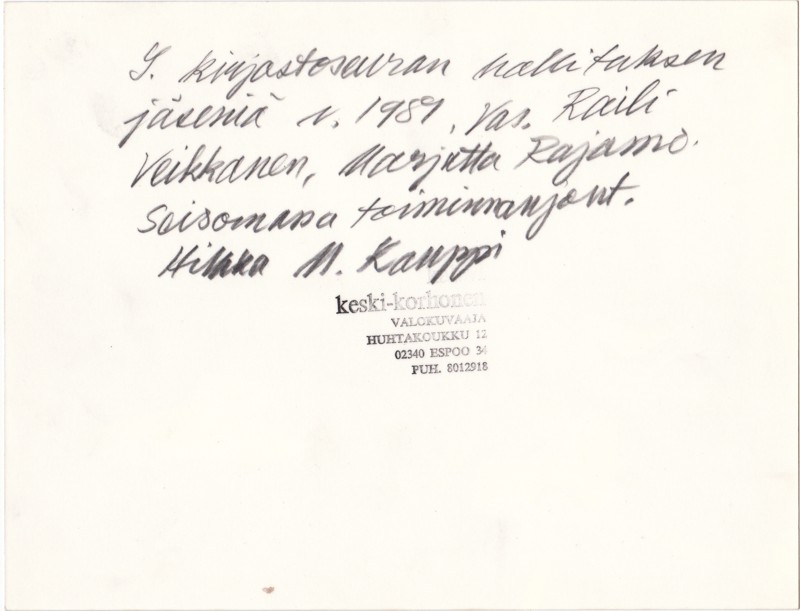 S. kirjastoseuran hallituksen
jäseniä v. 1989, Vas. Raili
Veikkanen, Marjatta Rajamo.
Seisomassa toiminnanjoht.
Hilkka M. Kauppi
keski-korhonen
VALOKUVAAJA
HUHTAKOUKKU 12
02340 ESPOO 34
PUH. 8012918